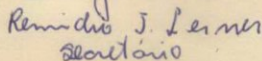 Remidio J. Lerner
secretário